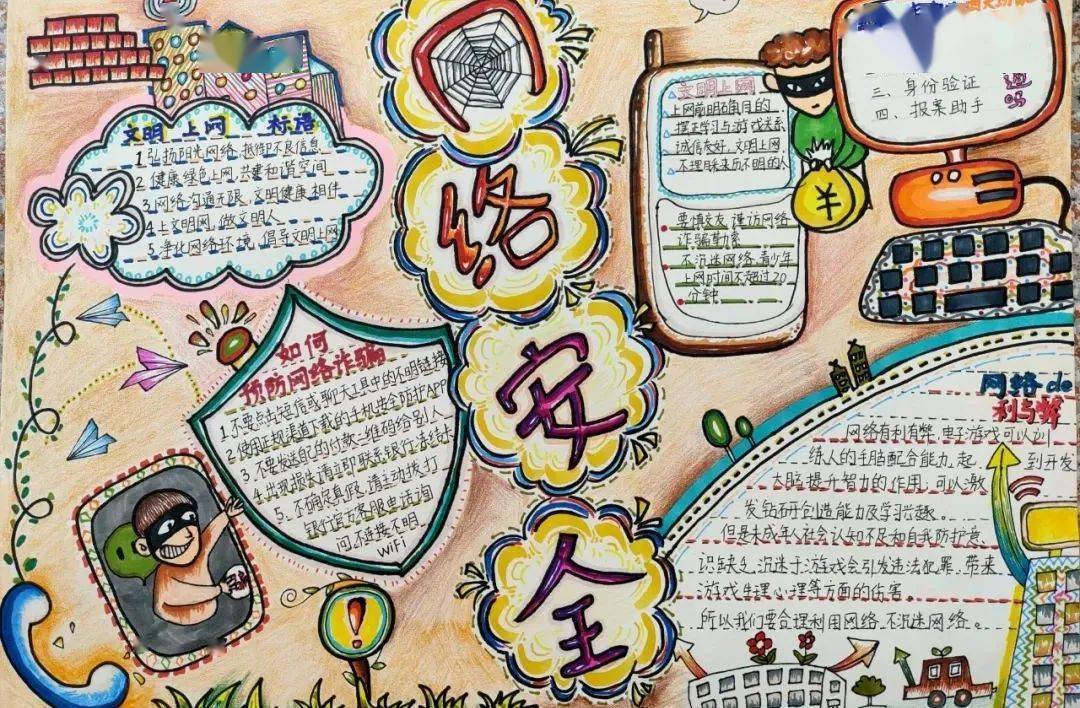 网
络
安
全
文明上网 标语
1 弘扬阳光网络,抵御不良信息
2 健康绿色上网,共建和谐空间
3 网络沟通无限,文明健康相伴
4 上文明网,做文明人
5 净化网络环境,倡导文明上网
如何
预防网络诈骗
1. 不要点击短信或聊天工具中的不明链接
2 使用正规渠道下载的手机安全防护APP
3 不要发送自己的付款二维码给别人
4 出现损失请立即联系银行冻结卡
5、不确定真假,请主动拨打
银行官方客服电话询
问,不连接不明
WiFi
文明上网
上网前明确目的
摆正学习与游戏关系
诚信友好,文明上网
不理睬来历不明的人
要慎交友,谨访网络
诈骗草力系
不沉迷网络,青少年
上网时间不超过20
分钟
三、身份验证
四、报案助手
¥
网络de
利与弊
网络有利有弊,电子游戏可以训
练人的手脑配合能力,起到开发
大脑提升智力的作用,可以激
发钻研创造能力及学习兴趣。
但是未成年人社会认知不足和自我防护意
识缺乏,沉迷于游戏会引发违法犯罪,带来
游戏生理心理等方面的伤害。
所以我们要合理利用网络,不沉迷网络。